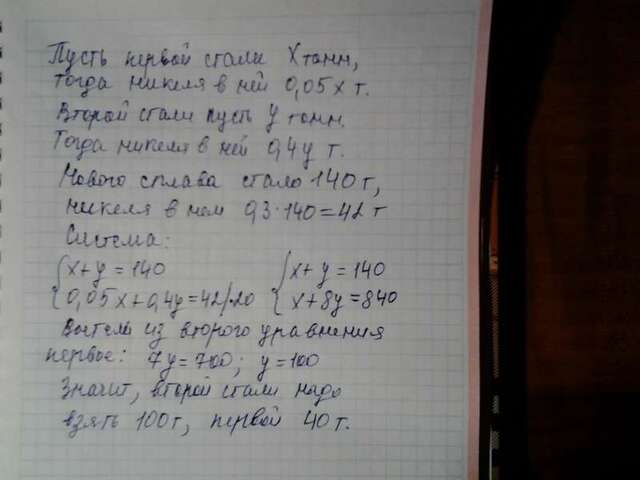 Пусть первой стали X тонн,
тогда никеля в ней 0,05х т.
Второй стали пусть у тонн.
Тогда никеля в ней 0,4у т.
Нового сплава стало 140 т,
никеля в нем 0,3·140=42 т
Система:
{х+у=140 {х+у=140
{0,05х+0,4у=42/·20 {х+8у=840
Вычтем из второго уравнения
первое: 7у=700; у=100
Значит, второй стали надо
взять 100 т, первой 40 т.